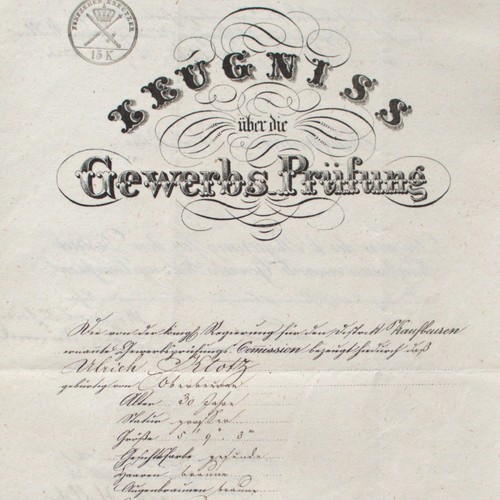 FÜNFZEHEN KREUZER
15 K
ZEUGNISS
über die
Gewerbs Prüfung
Die von der königl Regierung für den District Kaufbeuren
ernante Gewerbsprüfungs Comission bezeugt hiedurch daß
Ulrich Klotz
gebürtig von Oberbeuren
Alter 30 Jahre
Statur
Größe 5" 9' 3'"
Gesichtsfarbe gesunde
Haaren braune
Augenbraunen braune